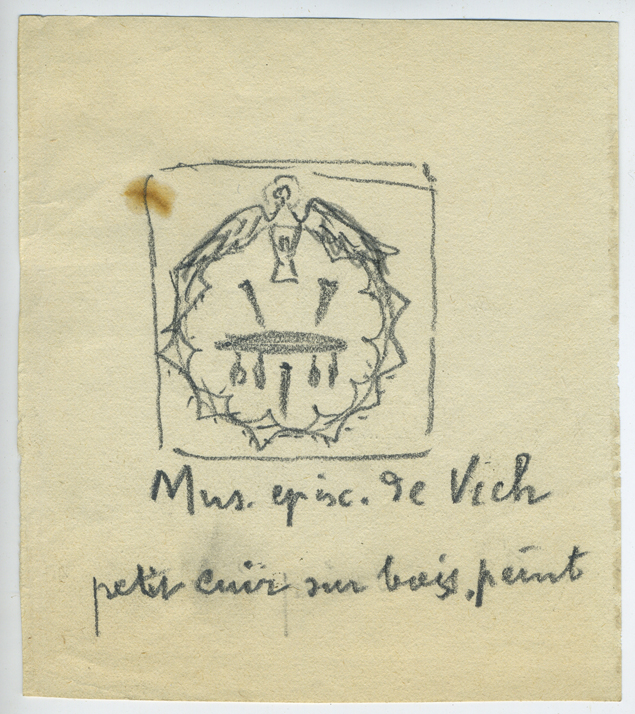 Mus. episc. de Vich
petit cuir sur bois, peint